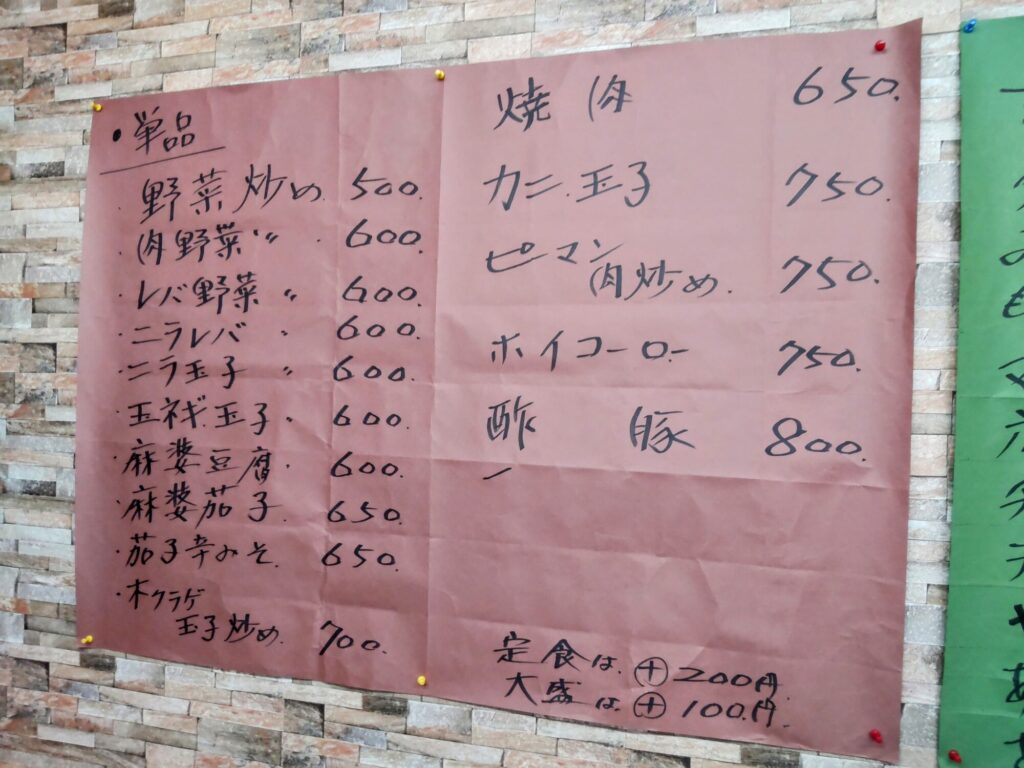 ・単品
・野菜炒め 500.
・肉野菜〃. 600.
・レバ野菜〃 600.
・ニラレバ〃 600.
・ニラ玉子〃 600.
・玉ネギ玉子〃 600.
・麻婆豆腐. 600.
・麻婆茄子. 650.
・茄子辛みそ. 650.
・木クラゲ
玉子炒め. 700.
焼肉 650.
カニ玉子 750.
ピーマン
肉炒め. 750.
ホイコーロー 750.
酢豚 800.
定食は、⊕200円.
大盛は、⊕100円.